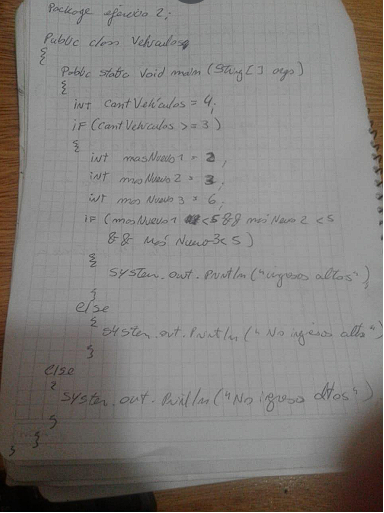 Package ejercicio 2;
Public class Vehiculos
{
Public static void main (String [] args)
{
int cantVehiculos = 4;
if (cantVehiculos >= 3)
{
int masNuevo1 = 2;
int masNuevo2 = 3;
int masNuevo3 = 6;
if (masNuevo1 <5 && masNuevo2 <5
&& mas Nuevo3<5)
{
System.out.Println("ingresos altos");
}
else
{
System.out.Println("No ingresos altos"
}
else
{
System.out.Println("No ingresos altos"
}
}
}